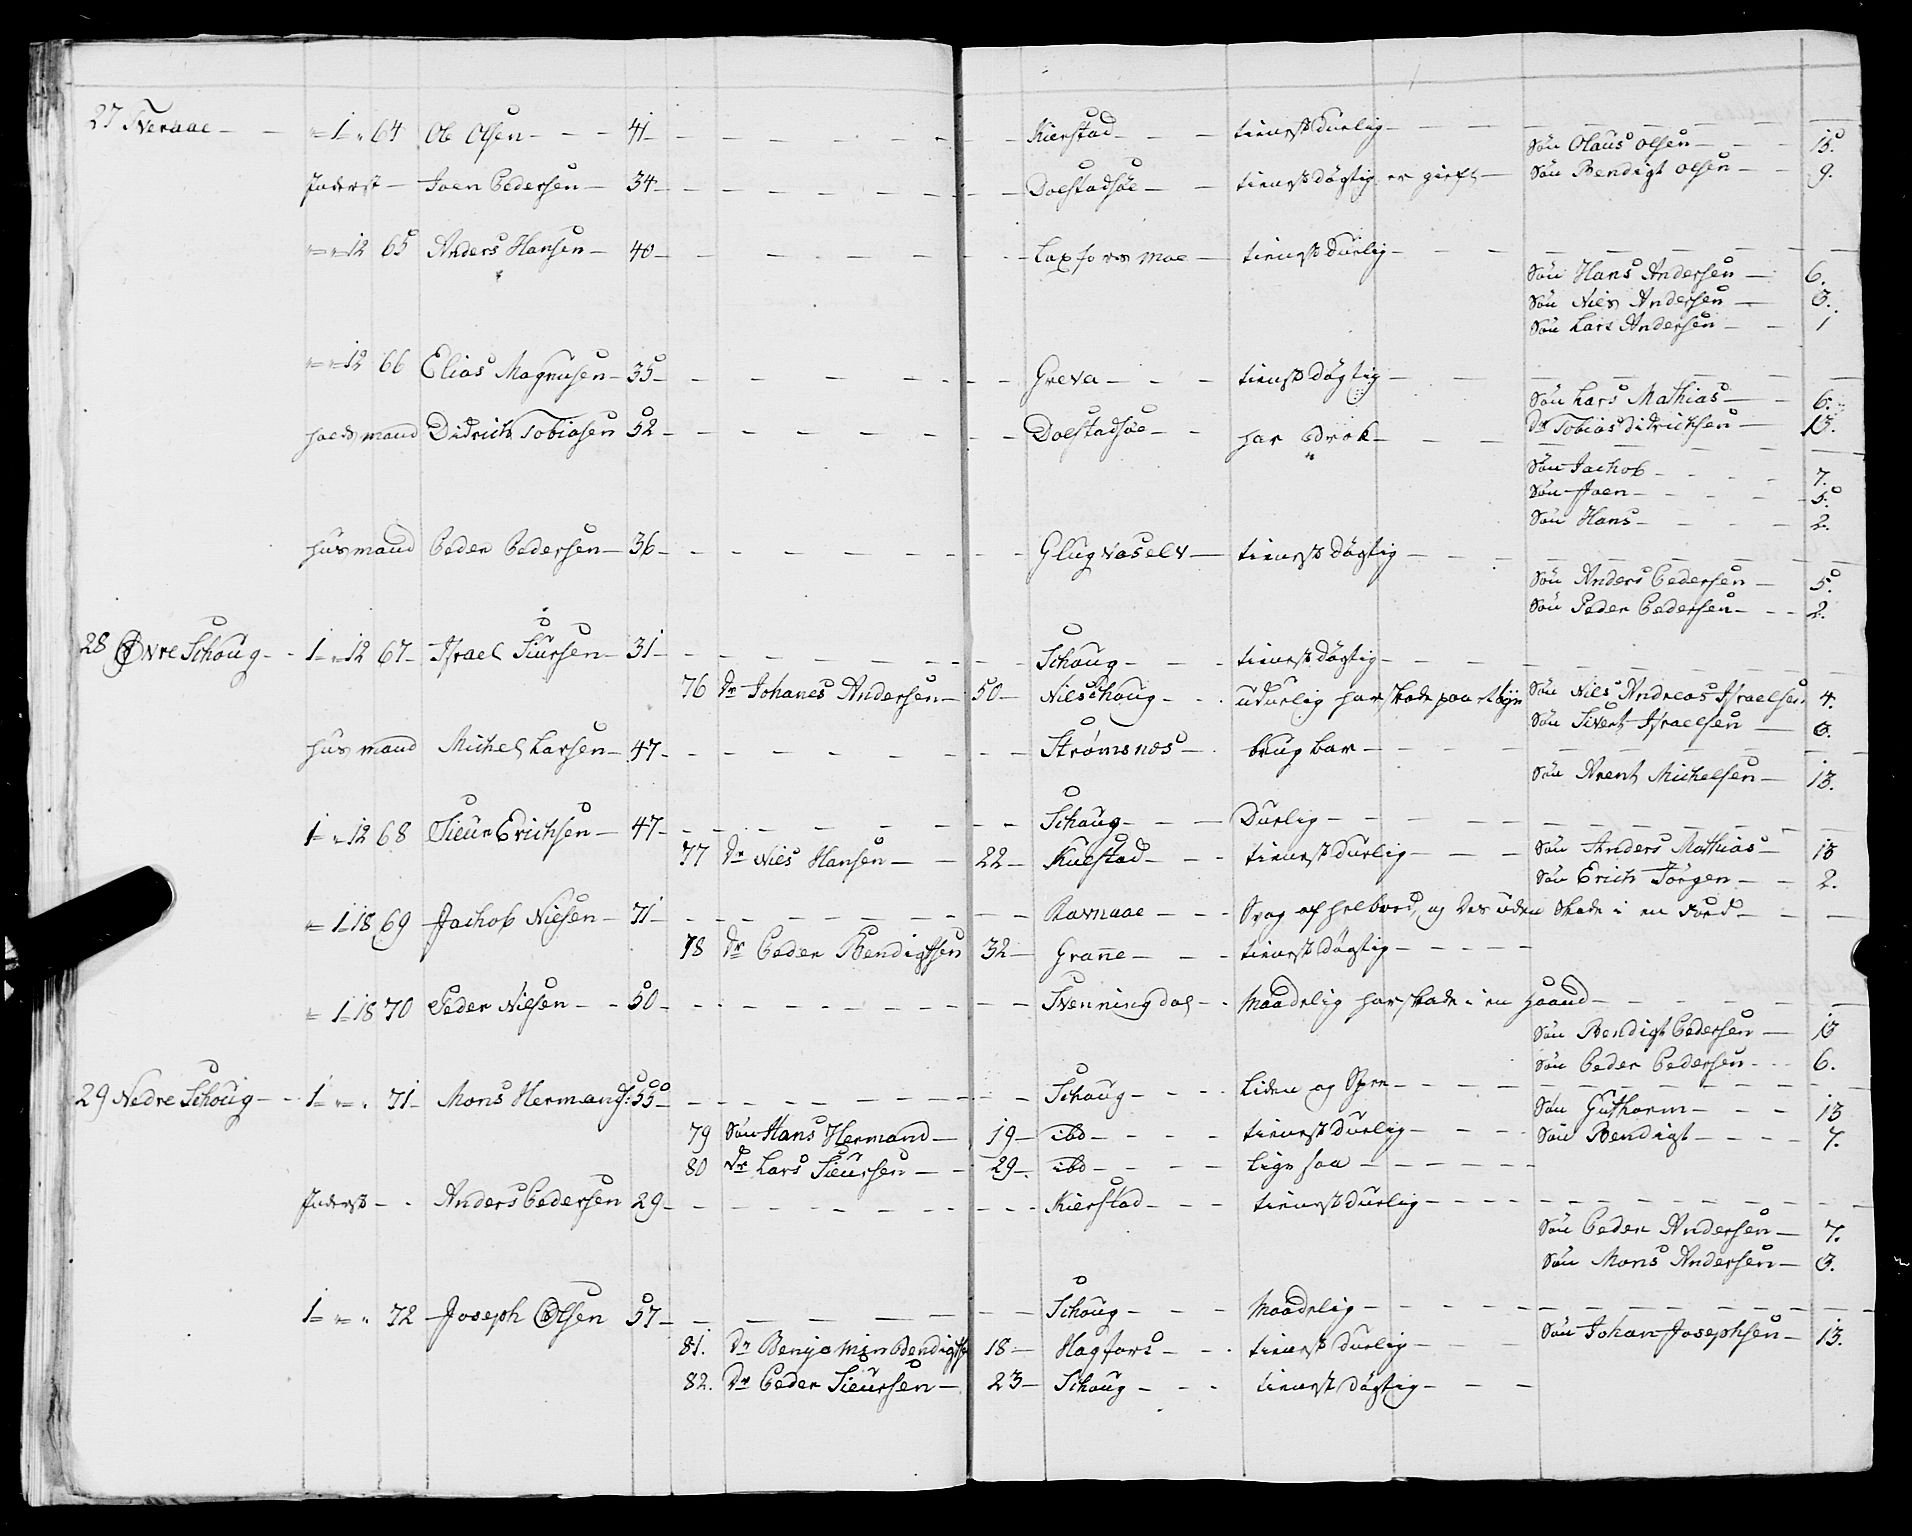 27 Tveraae - - " 1 " 64 Ole Olsen - - - 41 - Kierstad - - - tienst durlig -
Søn Olaus Olsen - - - 15.
Inderst - Joen Pedersen - 34 - Dolstadsøe - - tienst døgtig er gieft - Søn Bendigt Olsen - - 9.
" " 12 65 Anders Hansen - 40 - Laxfors moe - tienst durlig -
Søn Hans Andersen - 6.
Søn Niels Andersen - 3.
Søn Lars Andersen - - 1
" " 12 66 Elias Magnusen - 35 - Greva - - - tienst døgtig -
Søn Lars Mathias - - 6.
huusmand Didrich Tobiasen 52 - Dolstadsøe - - har Brok - Dr Tobias Didrichsen - 13.
Søn Jachob - 7.
Søn Joen - 5.
Søn Hans - 2.
huusmand Peder Pedersen - 36 - Glugvaselv - tienst døgtig -
Søn Anders Pedersen - 5.
Søn Peder Pedersen - - - 2.
28 Øvre Schoug - - 1 - " 12 67 - Israel Siursen - 31 - Schoug - - - tienst døgtig -
76 Dr Johanes Andersen - 50 - Nilschoug - - - udurlig har skade paa et øyn Søn Niels Andreas Israelsen 4.
Søn Sivert Israelsen - 3.
huusmand Michel Larsen - 47 - Strømsnæs - - brugbar -
Søn Arent Michelsen - 13.
1 - " 12 68 Sieur Erichsen - 47 - Schoug - - - Durlig -
77 Dr Niels Hansen - - 22 - Kulstad - - - tienst durlig - Søn Anders Mathias - 13
Søn Erich Jørgen - - 2.
" 1 18 69 Jachob Nielsen - 71 - Ravnaae - - - Svag af helbred, og des uden skade i en Foed -
78 Dr Peder Bendigtsen 32 - Grane - - - tienst døgtig -
" 1 18 70 Peder Nielsen - - 50 - Svenningdal - - Maadelig har skade i en haand -
Søn Bendigt Pedersen - 13
Søn Peder Pedersen - - 6.
29 Nedre Schoug - - 1 - " " 71 - Mons Hermands: 55 - Schoug - - - Liden og Spæ -
Søn Guthorm - - - 13
79 Søn Hans Hermand - 19 - ibd - - - - tienst durlig - Søn Bendigt - - - - 7.
80 Dr Lars Sieursen - - 29 - ibd - - - - lige saa -
Inderst - - Anders Pedersen 29 - Kierstad - - - tienst durlig -
Søn Peder Andersen - 7.
Søn Mons Andersen - 3.
1 - " " 72 - Joseph Olsen 57 - Schoug - - - Maadelig -
Søn Johan Josephsen - 13.
81. Dr Benjamin Bendigtse 18 - Hagfors - - - tienst durlig -
82. Dr Peder Sieursen - 23 - Schoug - - - tienst døgtig -